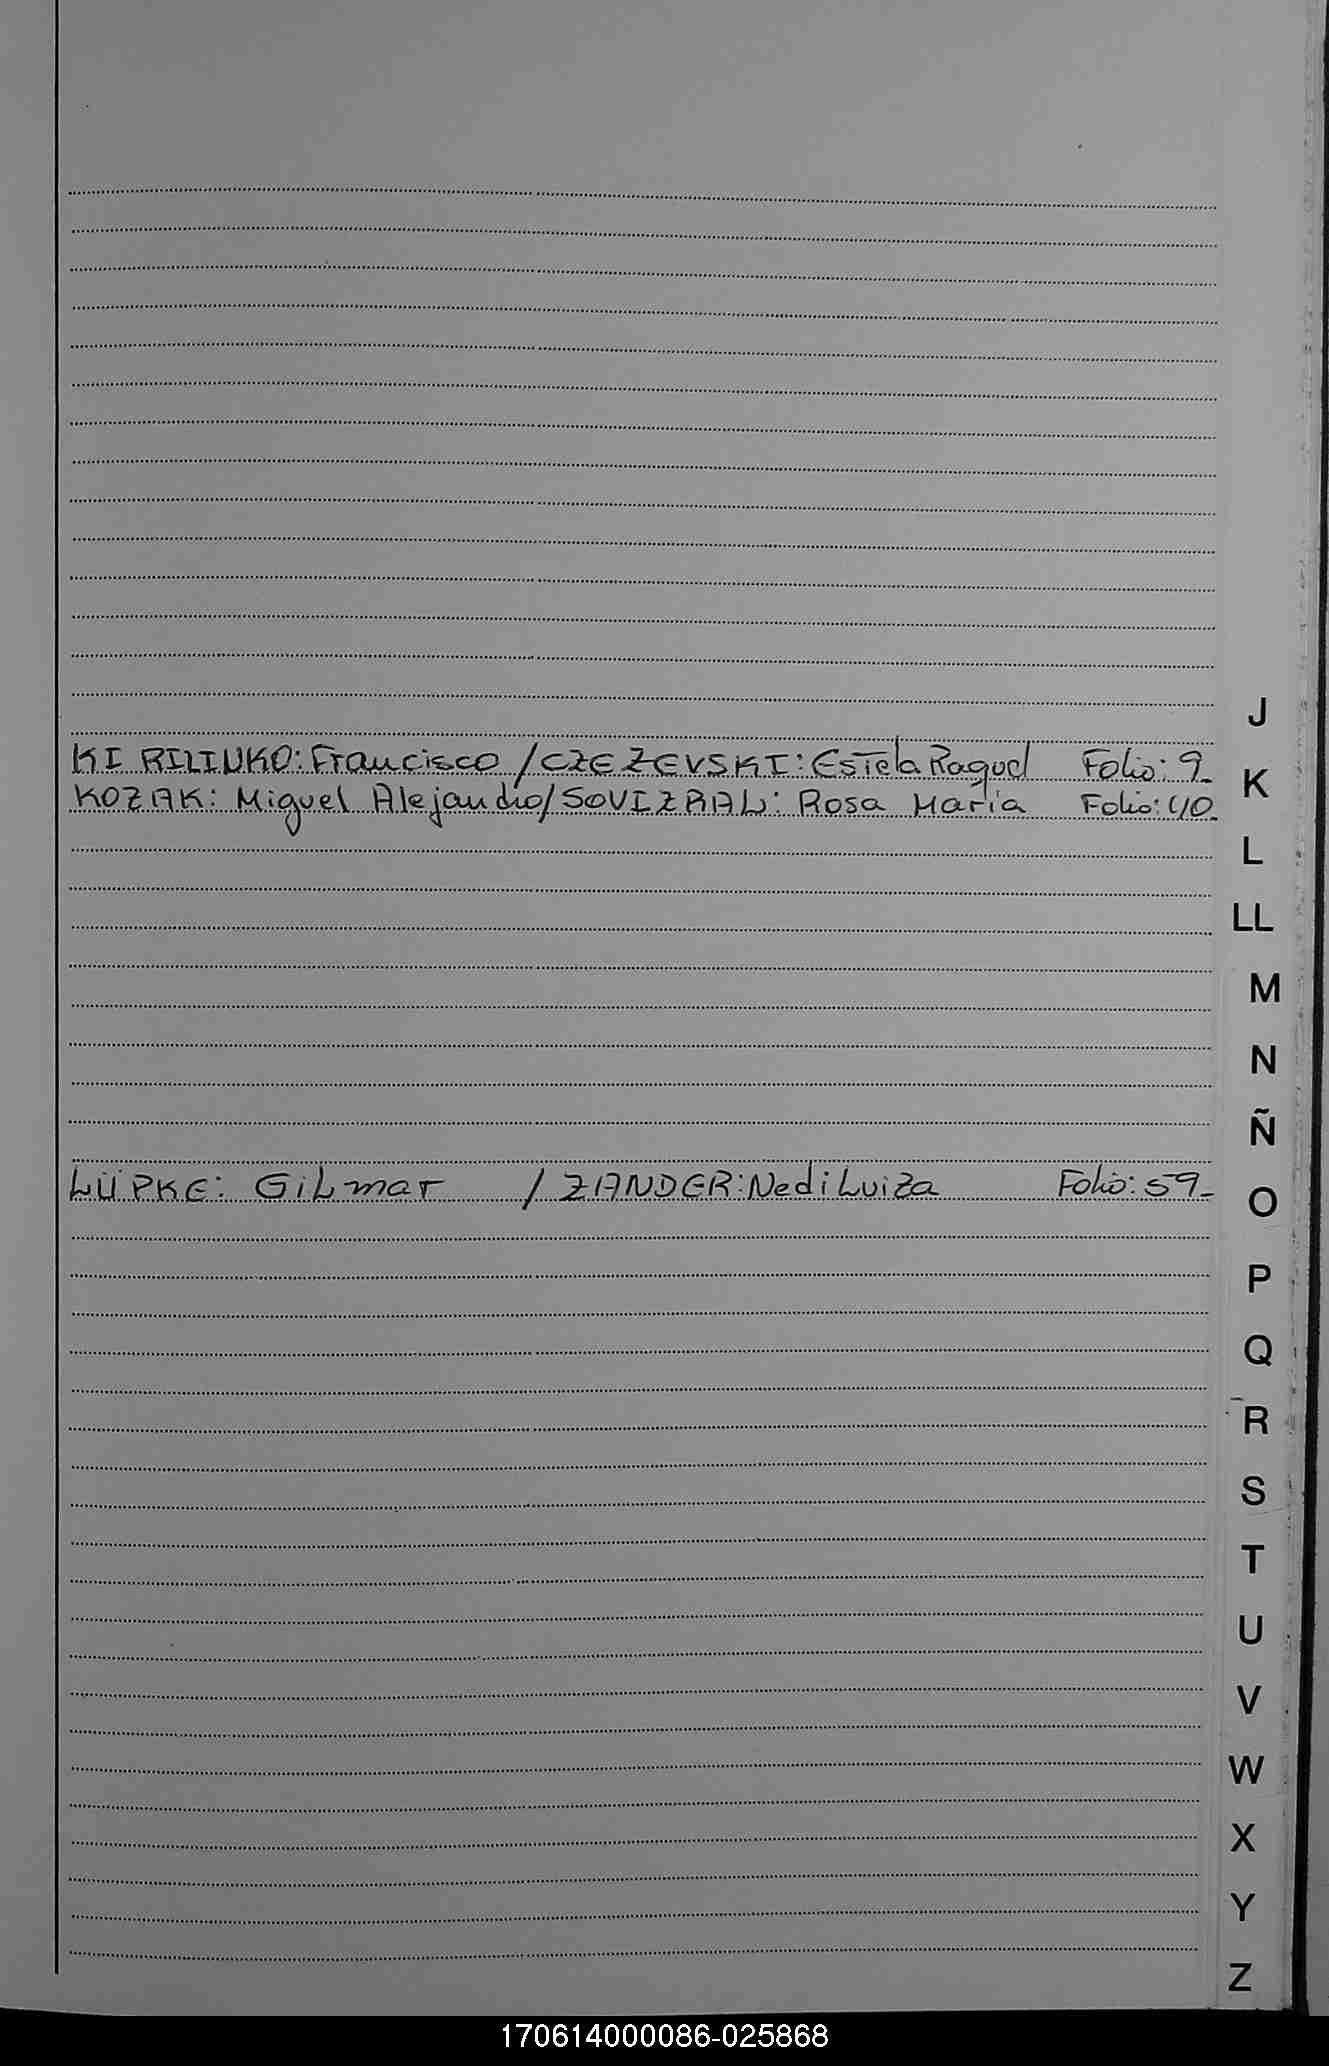 J
KIRILINKO: Francisco / CZEZEVSKI: Estela Raquel Folio: 9_
K
KOZAK: Miguel Alejandro / SOVIZRAL: Rosa María Folio: 40_
L
LL
M
N
Ñ
LÜPKE: Gilmar / ZANDER: Nedi Luiza Folio: 59_
O
P
Q
R
S
T
U
V
W
X
Y
Z
170614000086-025868